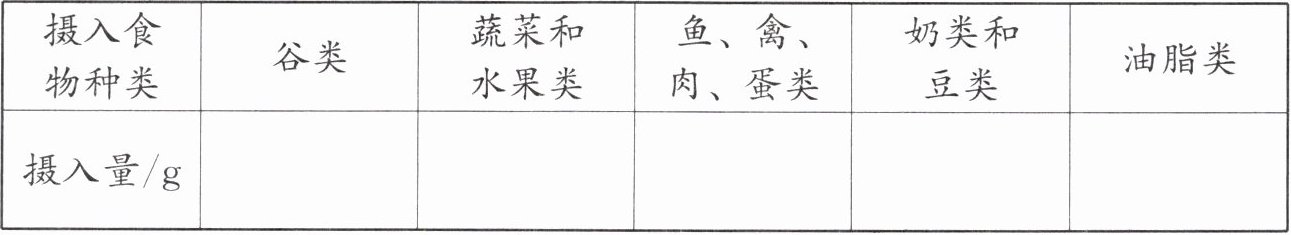 摄入食
物种类
谷类
蔬菜和
水果类
鱼、禽、
肉、蛋类
奶类和
豆类
油脂类
摄入量/g